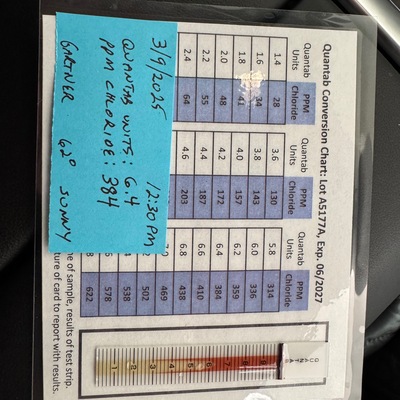 Quantab Conversion Chart: Lot A5177A, Exp. 06/2027
Quantab Units PPM Chloride Quantab Units PPM Chloride Quantab Units PPM Chloride
1.4 28 3.6 130 5.8 314
1.6 34 3.8 143 6.0 336
1.8 41 4.0 157 6.2 359
2.0 48 4.2 172 6.4 384
2.2 55 4.4 187 6.6 410
2.4 64 4.6 203 6.8 438
469
502
538
578
622
3/9/2025 12:30PM
QUANTAB UNITS: 6.4
PPM CHLORIDE: 384
GARTNER 62° SUNNY
of sample, results of test strip.
of card to report with results.
QUANTAB
9
8
7
6
5
4
3
2
1